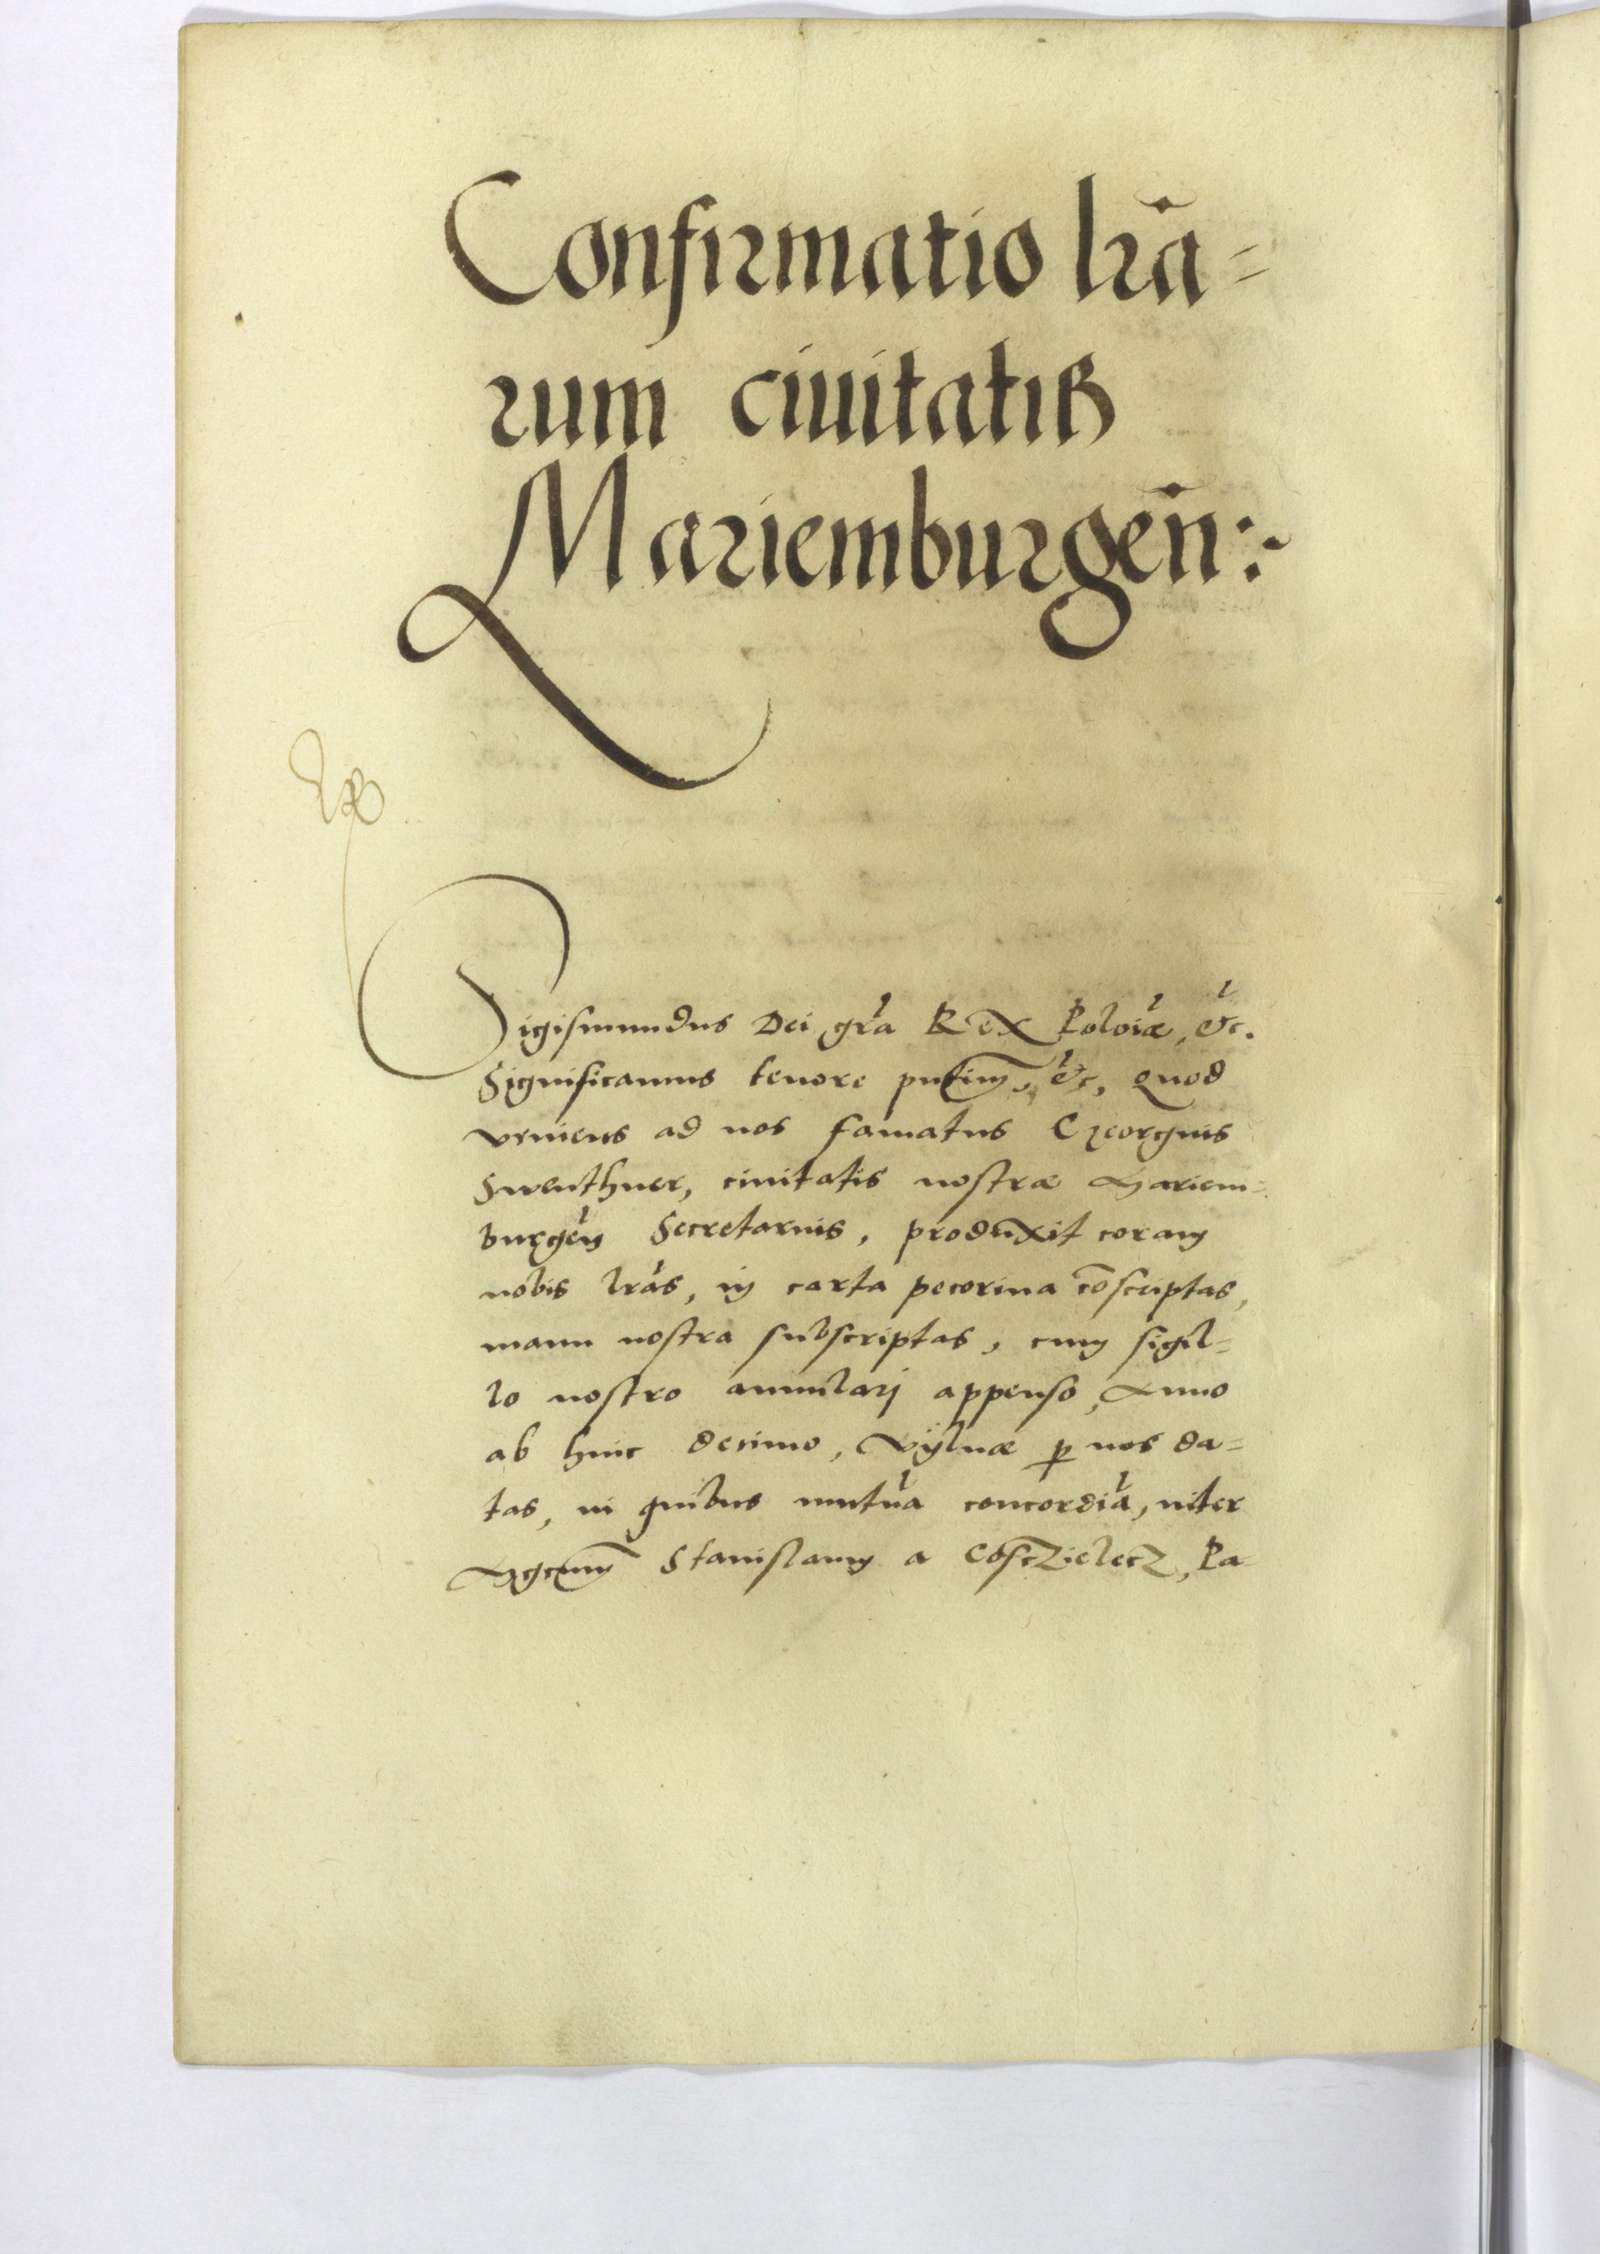 Confirmatio lrā=
rum ciuitatis
Mariemburgeñ:
Sigismundus Dei gra Rex Poloiæ, etc.
Significamus tenore pntium, etc, Quod
veniens ad nos famatus Georgius
Swenthner, ciuitatis nostræ Mariem=
burgen Secretarius, produxit coram
nobis lras, in carta pecorina cōscriptas,
manu nostra subscriptas, cum sigil=
lo nostro annulari appenso, Anno
ab hinc decimo, Vÿlnæ p nos da=
tas, in quibus mutua concordia, inter
Mgcum Stanislaum a Coſczielecz, Pa